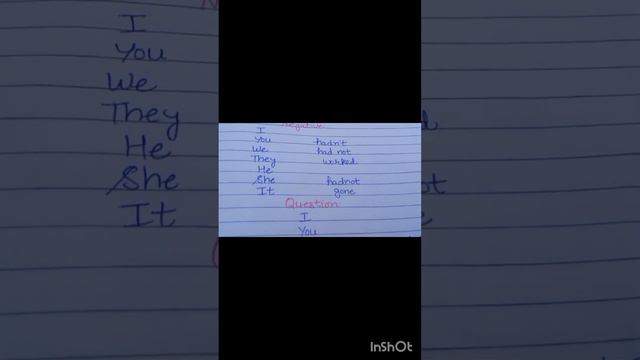 Negative
I
You hadn't
We had not
They worked
He
She hadnot
It gone
Question
I
You
I
You
We
They
He
She
It
InShOt